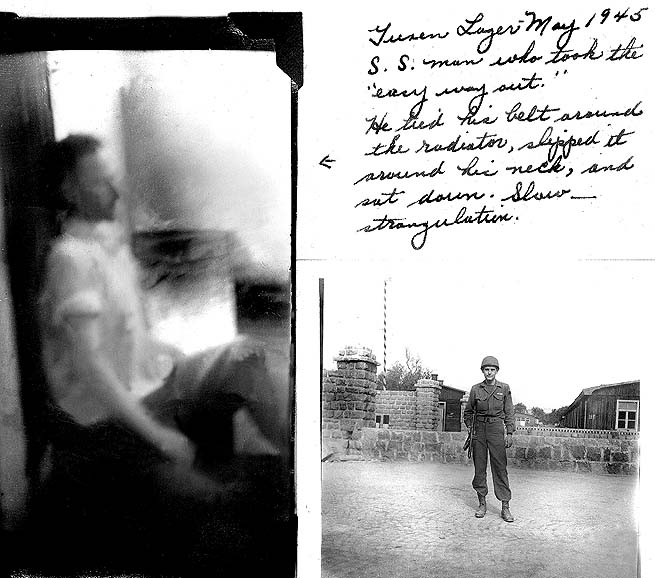 Gusen Lager May 1945
S. S. man who took the
"easy way out."
He tied his belt around
the radiator, slipped it
around his neck, and
sat down. Slow —
strangulation.